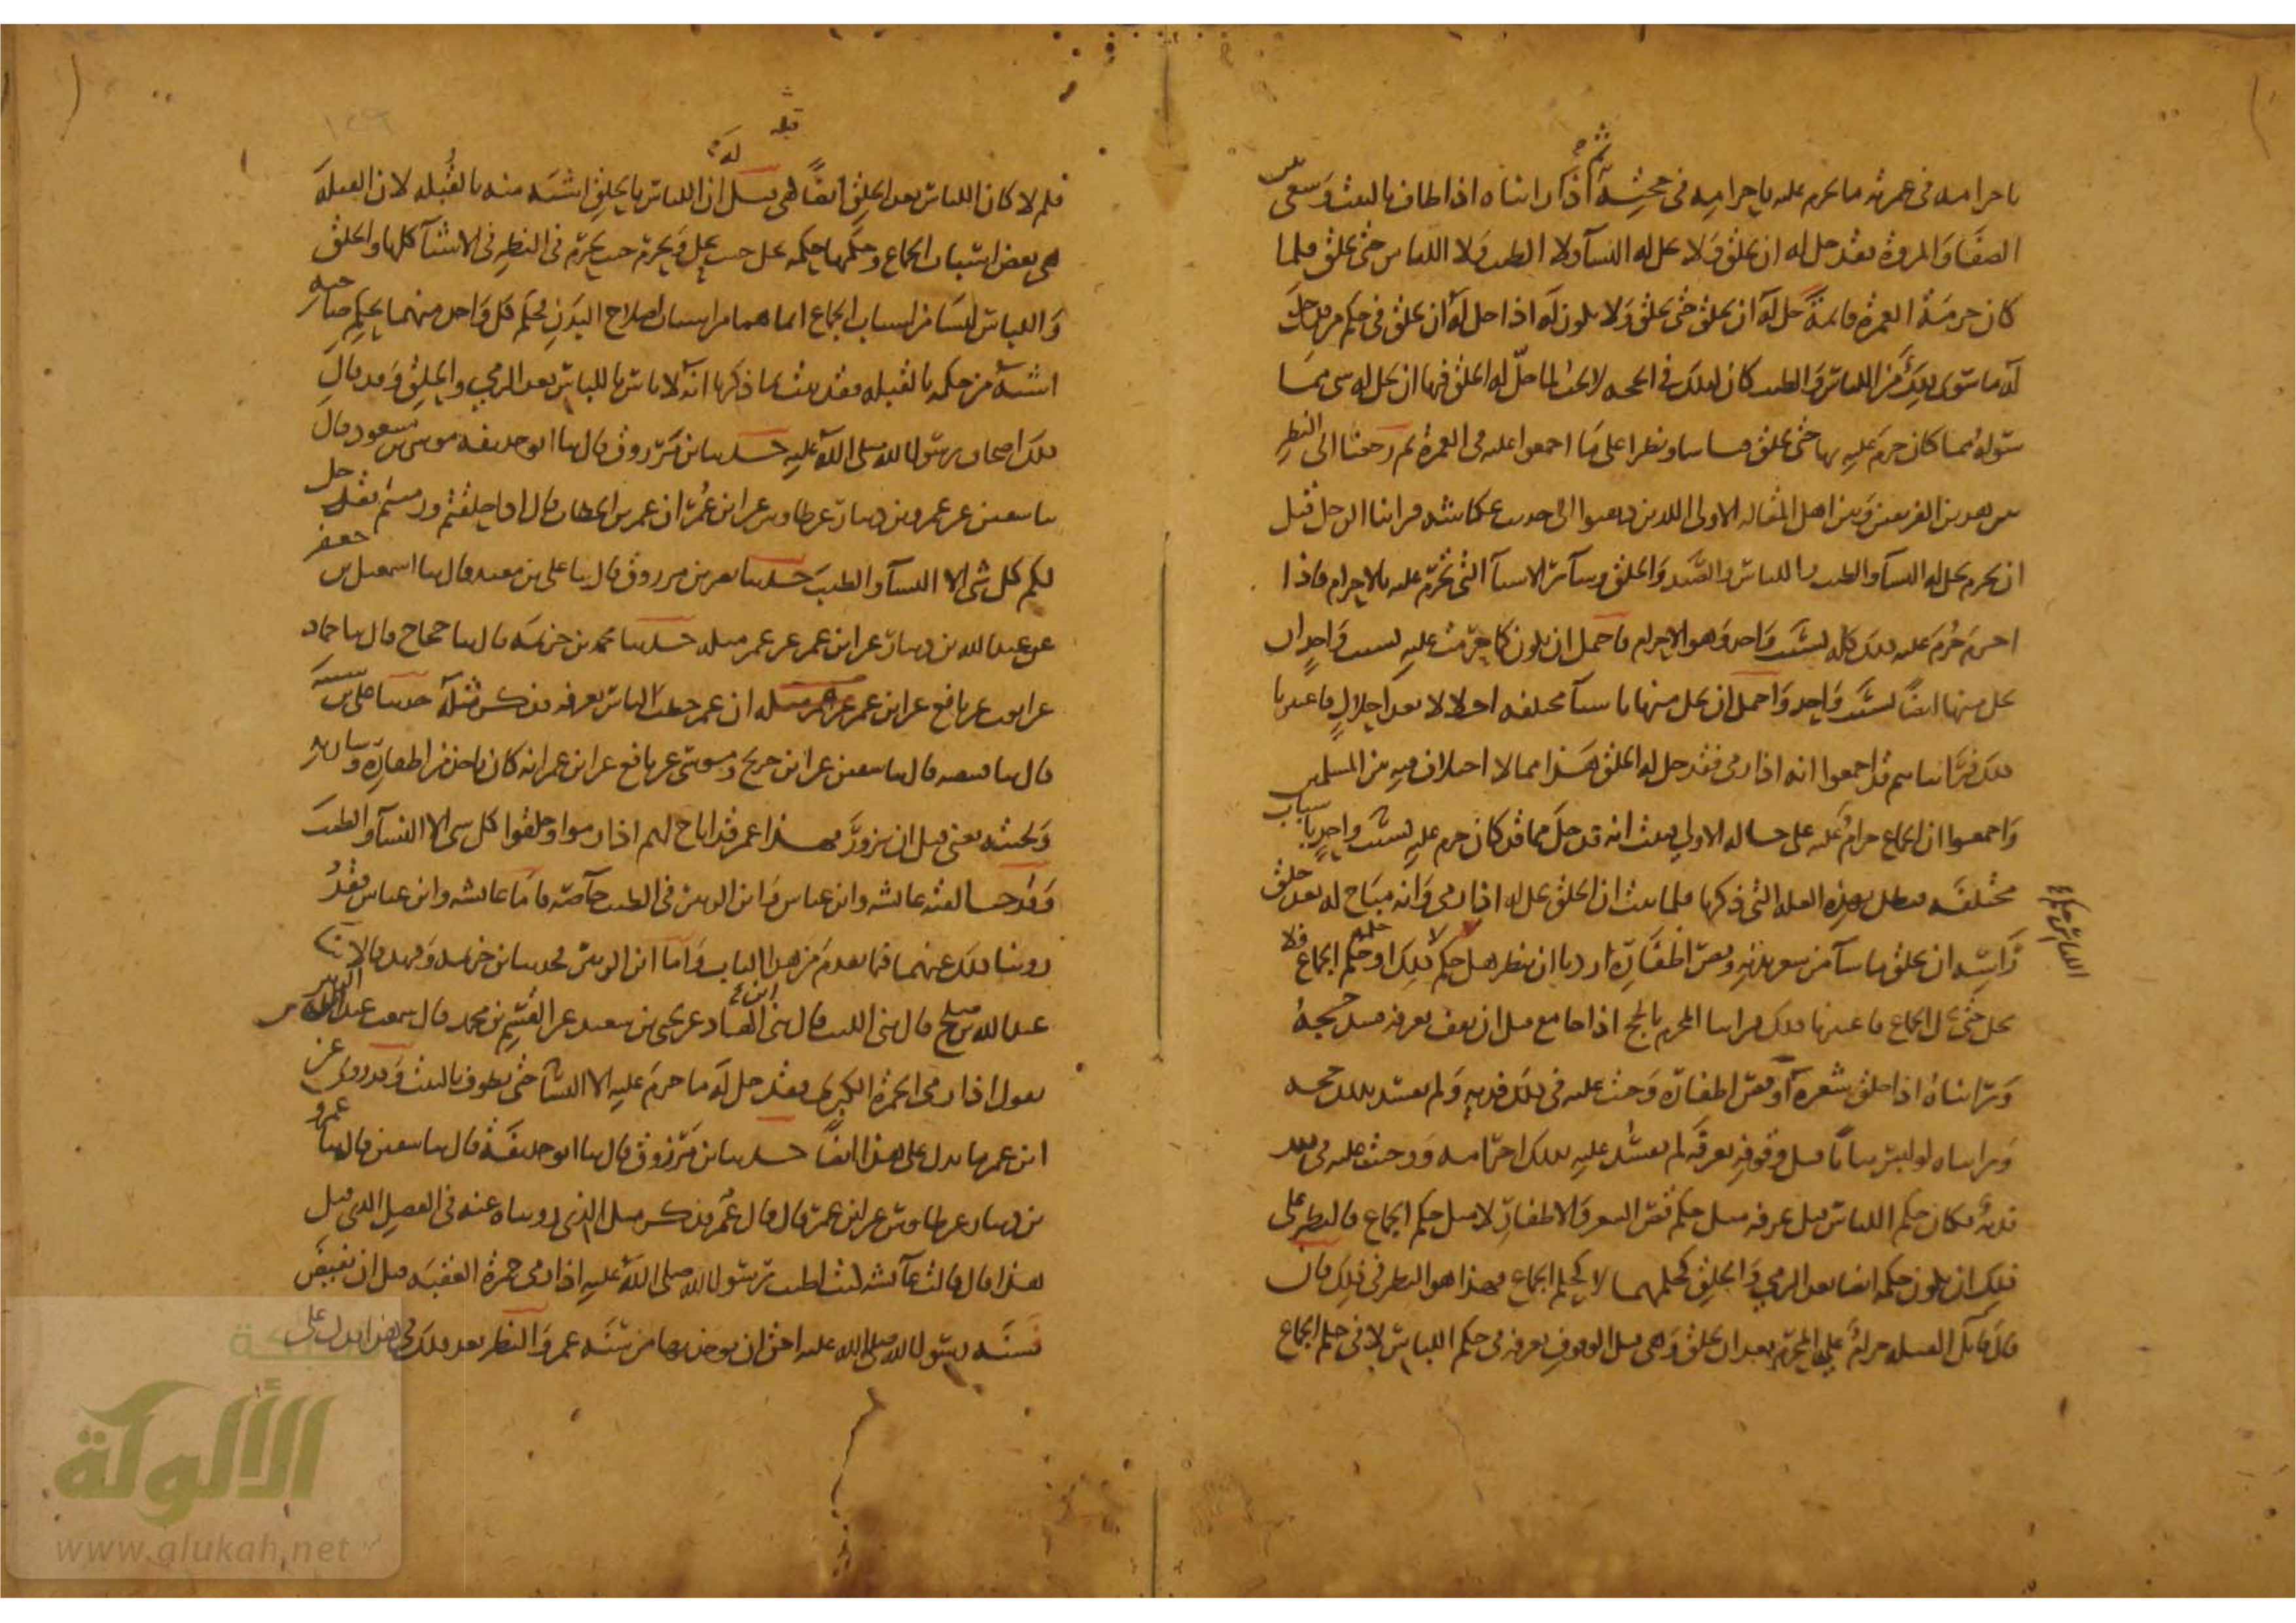 باحرامه في عمرته ما يحرم عليه باحرامه في حجته ثم رأيناه اذا طاف بالبيت وسعى بين
الصفا والمروة فقد حل له ان يحلق ولا يحل له النسآ ولا الطيب ولا اللباس حتى يحلق فلما
كان حرمة العمرة قائمة حل له ان يحلق حتى يحلق ولا يكون له اذا حل له ان يحلق في حكم من قد حل
له ما سوى ذلك من اللباس والطيب كان كذلك في الحجه لا يجب لما حل له الحلق فيها ان يحل له شي مما
سواه مما كان حرم عليه بها حتى يحلق قياسا ونظرا على ما اجمعوا عليه في العمرة ثم رجعنا الى النظر
بين هذين الفريقين وبين اهل المقاله الاولى الذين ذهبوا الى حديث عكاشه فراينا الرجل قبل
ان يحرم يحل له النسآ والطيب واللباس والصيد والحلق وسائر الاشيآ التي تحرم عليه بالاحرام فاذا
احرم حرم عليه ذلك كله بسبب واحد وهو الاحرام فاحتمل ان يكون كما حرمت عليه بسبب واحد ان
يحل منها ايضا بسبب واحد واحتمل ان يحل منها باشيآ مختلفه احلالا بعد احلال فاعتبرنا
ذلك فرايناهم قد اجمعوا انه اذا رمى فقد حل له الحلق هذا مما لا اختلاف فيه بين المسلمين
واجمعوا ان الجماع حرام عليه على حاله الاولى فثبت انه قد حل مما قد كان حرم عليه بسبب واحد باسباب
مختلفه فبطل بهذه العله التي ذكرها فلما ثبت ان الحلق يحل له اذا رمى وانه مباح له بعد حلق
رأسه ان يحلق ما شآ من شعر بدنه ويقص اظفاره اردنا ان ننظر هل حكم اللباس حكم ذلك او حكمه حكم الجماع فلا
يحل حتى يحل الجماع فاعتبرنا ذلك فراينا المحرم بالحج اذا جامع قبل ان يقف بعرفه فسد حجه
ورايناه اذا حلق شعره او قص اظفاره وجبت عليه في ذلك فديه ولم يفسد بذلك حجه
ورايناه لو لبس ثيابا قبل وقوفه بعرفه لم يفسد عليه بذلك احرامه ووجبت عليه في ذلك
فديه فكان حكم اللباس قبل عرفه مثل حكم قص الشعر والاظفار لا مثل حكم الجماع فالنظر على
ذلك ان يكون حكمه ايضا بعد الرمي والحلق كحكمهما لا كحكم الجماع فهذا هو النظر في ذلك فان
قال قائل القبله حرام على المحرم بعد ان يحلق وهي قبل الوقوف بعرفه في حكم اللباس لا في حكم الجماع
١٤٦
فلم لا كان اللباس بعد الحلق ايضا كهي قيل له ان اللباس بالحلق اشبه منه بالقبله لان القبله
هي بعض اسباب الجماع وحكمها حكمه تحل حيث يحل وتحرم حيث يحرم في النظر في الاشيآ كلها والحلق
واللباس ليسا من اسباب الجماع انما هما من اسباب اصلاح البدن فحكم كل واحد منهما بحكم صاحبه
اشبه من حكمه بالقبله فقد ثبت بما ذكرنا انه لا باس باللباس بعد الرمي والحلق وقد قال
ذلك اصحاب رسول الله صلى الله عليه حدثنا ابن مرزوق قال ثنا ابو حذيفه موسى بن مسعود قال
ثنا سفين عن عمرو بن دينار عن طاوس عن ابن عمر ان عمر بن الخطاب قال اذا حلقتم ورميتم فقد حل
لكم كل شى الا النسآ والطيب حدثنا نصر بن مرزوق قال ثنا علي بن معبد قال ثنا اسمعيل بن جعفر
عن عبد الله بن دينار عن ابن عمر عن عمر مثله حدثنا محمد بن خزيمه قال ثنا حجاج قال ثنا حماد
عن ايوب عن نافع عن ابن عمر ان عمر خطب الناس بعرفه فذكر مثله حدثنا علي بن شيبه
قال ثنا قبيصه قال ثنا سفين عن ابن جريج وموسى عن نافع عن ابن عمر انه كان ياخذ من اظفاره وشاربه
ولحيته يعني قبل ان يزور فهذا عمر قد اباح لهم اذا رموا وحلقوا كل شى الا النسآ والطيب
وقد خالفته عائشه وابن عباس وابن الزبير في الطيب خاصه فاما عائشه وابن عباس فقد
روينا ذلك عنهما فيما تقدم من هذا الباب واما ابن الزبير فحدثنا ابن خزيمه وفهد قالا ثنا
عبد الله بن صلح قال ثنى الليث قال ثنى ابن الهاد عن يحيى بن سعيد عن القسم بن محمد قال سمعت عبد الله بن الزبير
يقول اذا رمى الجمرة الكبرى فقد حل له ما حرم عليه الا النسآ حتى يطوف بالبيت وقد روي عن
ابن عمر ما يدل على هذا ايضا حدثنا ابن مرزوق قال ثنا ابو حذيفه قال ثنا سفين قال ثنا عمرو
بن دينار عن طاوس عن ابن عمر قال قال عمر فذكر مثل الذي رويناه عنه في الفصل الذي قبل
هذا قال قالت عائشه كنت اطيب رسول الله صلى الله عليه اذا رمى جمرة العقبه قبل ان يفيض
فسنه رسول الله صلى الله عليه احق ان يوخذ بها من سنه عمر والنظر بعد ذلك في هذا يدل على
شبكة
الألوكة
www.alukah.net